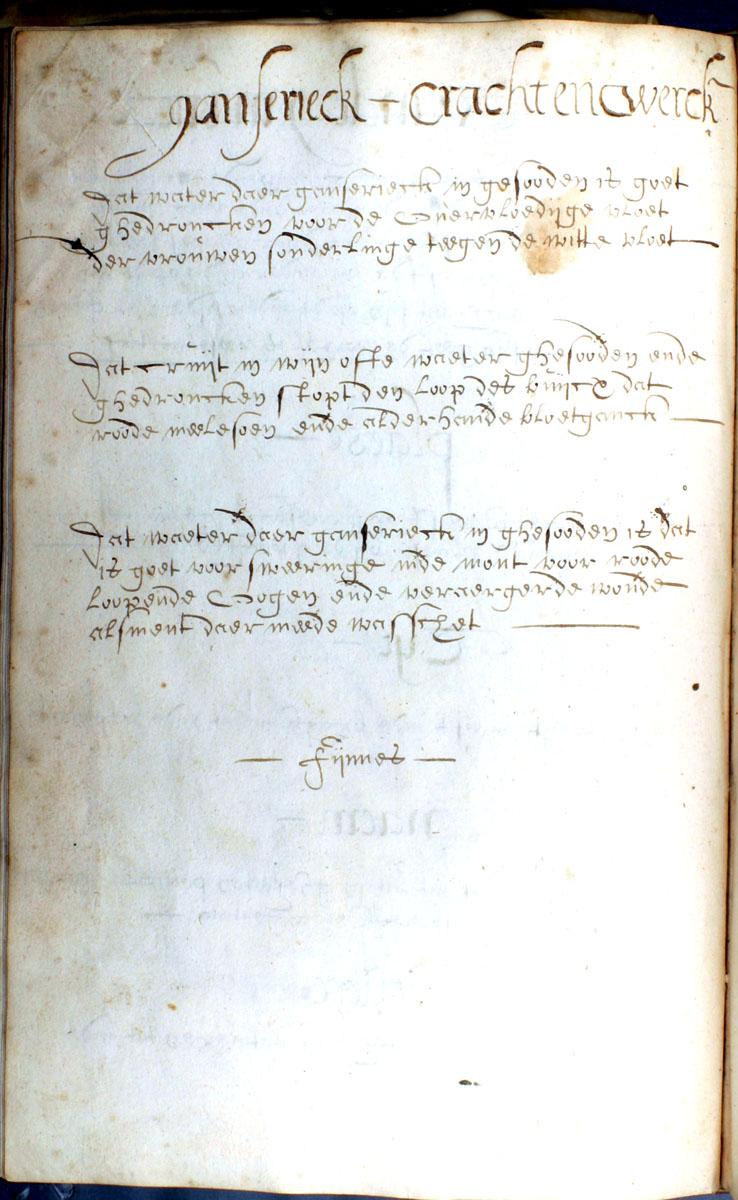 ganserieck - Crachtenwerck
Dat water daer ganserieck in gesooden is goet
ghedroncken voor de Overvloedijge vloet
der vrouwen sonderlinge teegen de witte vloet
Dat cruijt in wijn ofte waeter ghesooden ende
ghedroncken stopt den loop des buijcx dat
roode meelesoen ende alderhande bloetganck
Dat waeter daer ganserieck in ghesooden is dat
is goet voor sweeringe inde mont voor roode
loopende Oogen ende veraergerde wonde
alsment daer meede wasschet
- Fijnnes -